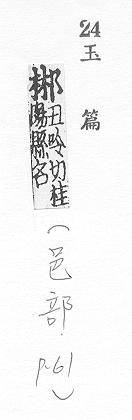 24
玉篇
郴
丑吟切桂
陽縣名
(邑部. P.61)